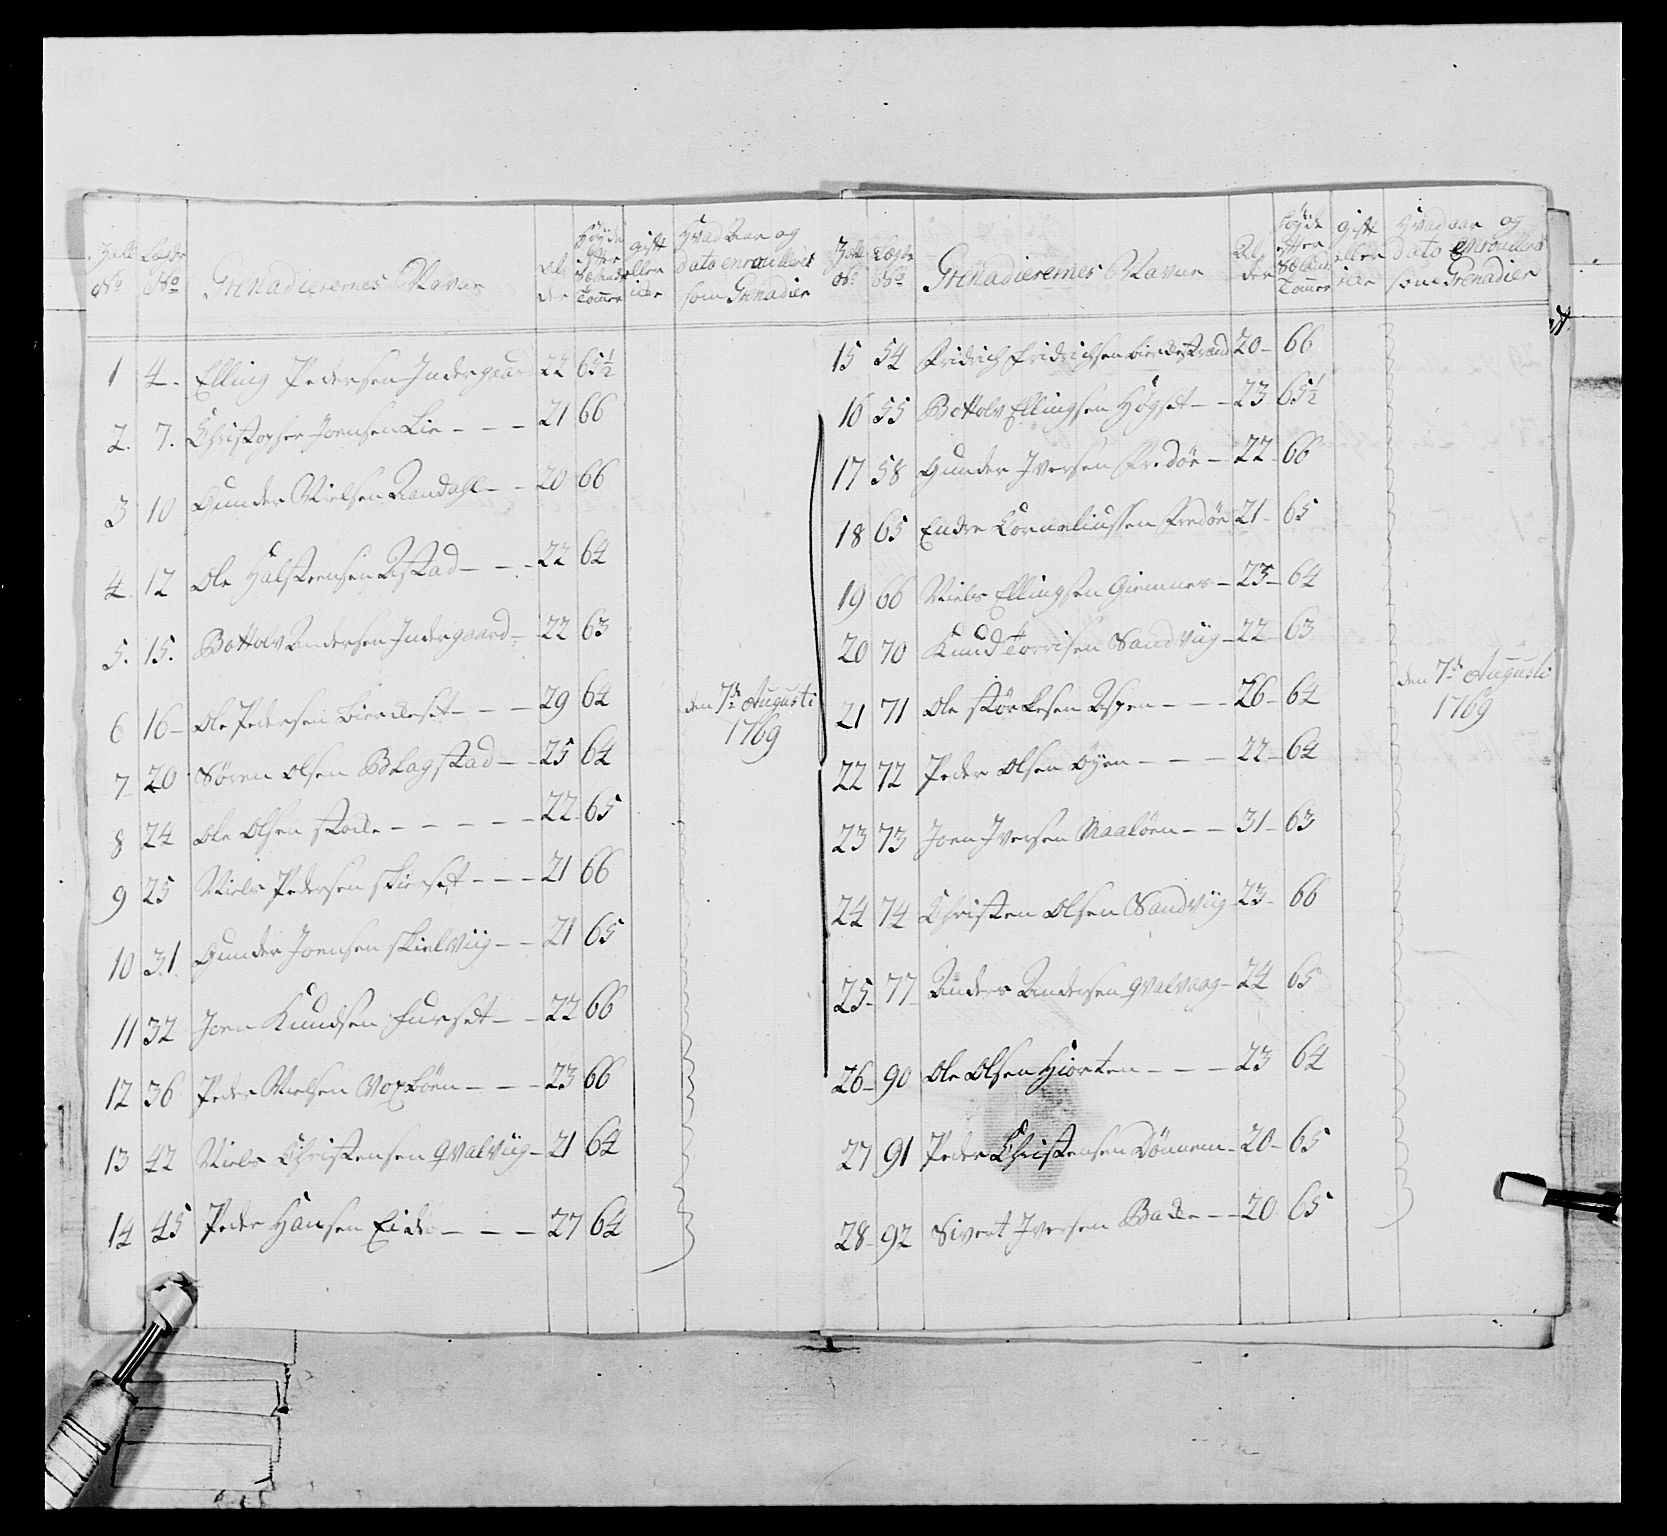 Grenadierernes Navne
Al
der
gift
eller
icke
Hvad Aar og
dato enroulleret
som Grenadier
1 4. Elling Pedersen Indergaard 22 65½
2. 7. Christopher Joensen Lie - - - 21 66
3 10 Gunder Nielsen Randahl - - 20 66
4 12 Ole Halsteensen Astad - - - 22 64
5. 15. Bottolv Andersen Indergaard - 22 63
6 16 - Ole Pedersen Bierckeset - - - 29 64
den 7de Augusti
1769
7 20 Søren Olsen Blagstad - - 25 64
8 24 Ole Olsen - - - - - 22 65
9 25 Niels Pedersen Skierset - - - 21 66
10 31 Gunder Joensen Skielviig - - 21 65
11 32 Joen Knudsen Furset - - 22 66
12 36 Peder Nielsen Voxböen - - - 23 66
13 42 Niels Christensen Qvalviig - 21 64
14 45 Peder Hansen Eide - - - 27 64
Grenadierernes Navne
Al
der
gift
eller
icke
Hvad aar og
dato enroulleret
som Grenadier
15 54 Fridrich Fridrichsen Bierckestrand 20 - 66
16 55 Bottolv Ellingsen Högset - - 23 65½
17 58 Gunder Iversen Fredöe - 22 - 66
18 65 Endre Corneliussen Fredöe 21 - 65
19 66 Niels Ellingsen Giemnes - 23 - 64
20 70 Knud Torrisen Sandviig - 22 - 63
21 71 Ole Störckesen Aspen - - - 26 - 64
den 7de Augusti
1769
22 72 Peder Olsen Öyen - - - 22 - 64
23 73 Joen Iversen Maalöen - - 31 - 63
24 74 Christen Olsen Sandviig 23 - 66
25 - 77 - Anders Andersen Qvalvaag - 24 65
26 - 90 Ole Olsen Hiorten - - - 23 64
27 91 Peder Christensen Dönnem - 20 - 65
28 - 92 Sivert Iversen - - 20 65